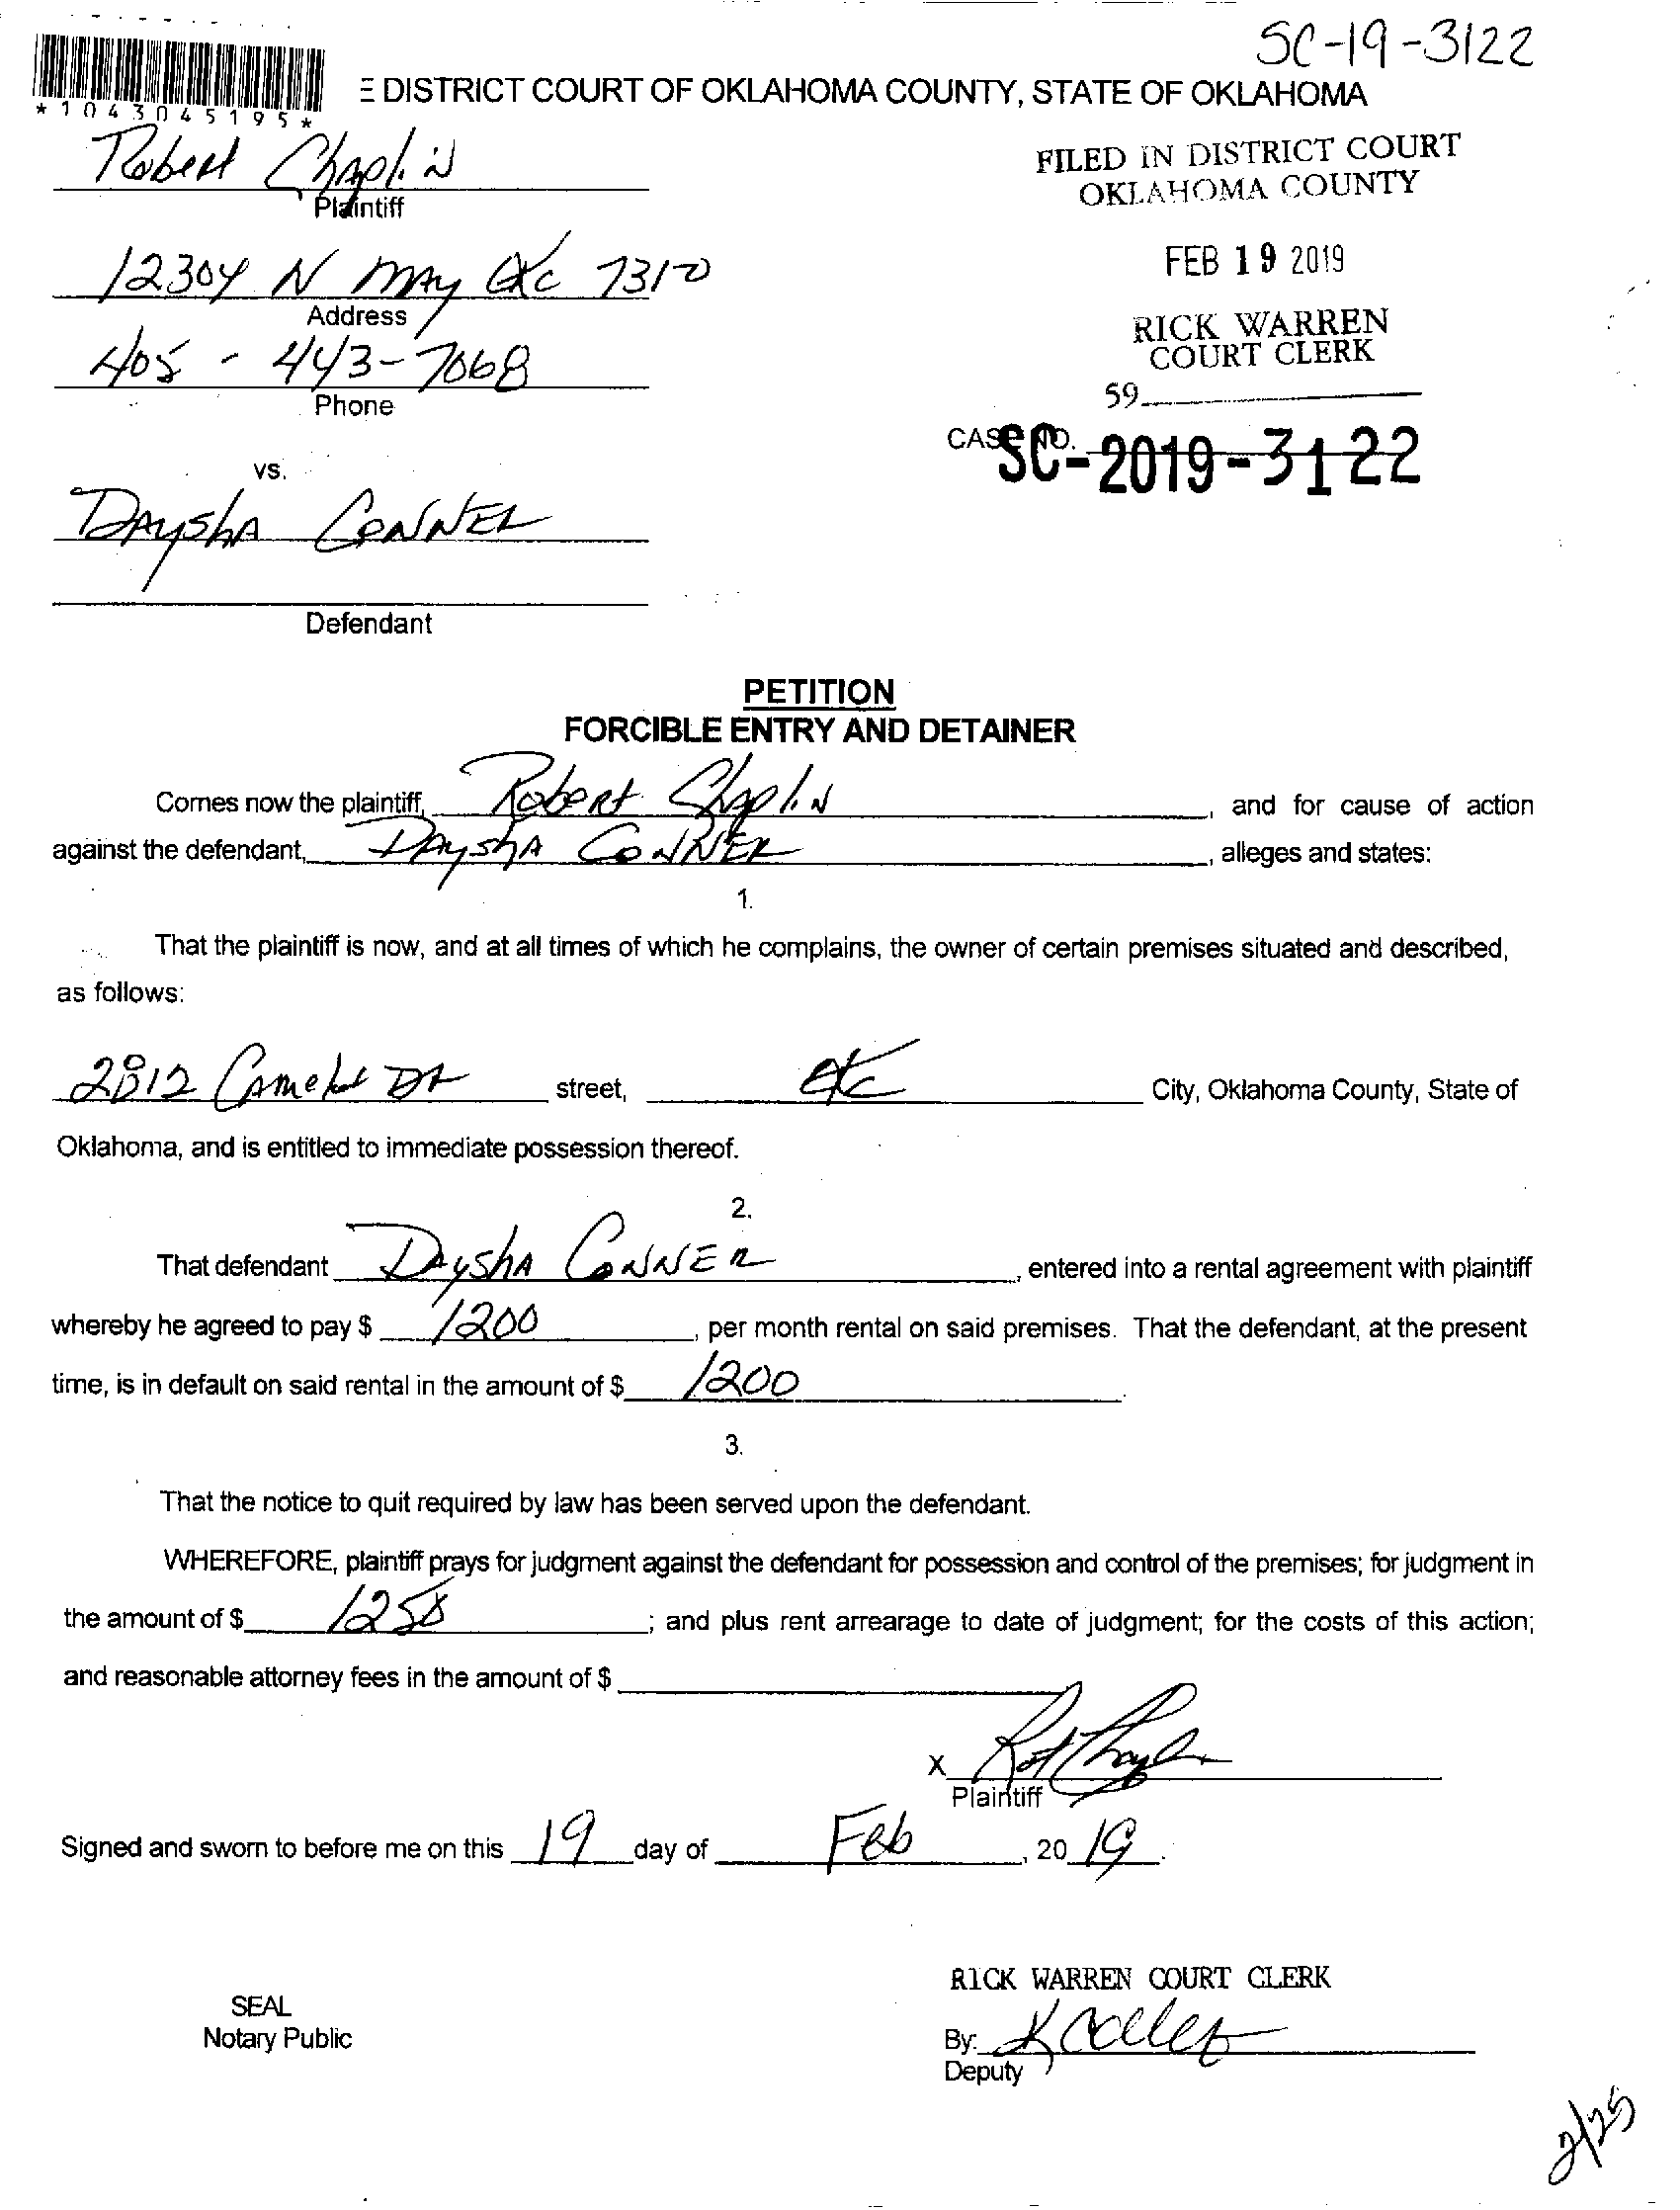 SC-19-3122
E DISTRICT COURT OF OKLAHOMA COUNTY, STATE OF OKLAHOMA
*1043045195*
Robert Chaplin
Plaintiff
FILED IN DISTRICT COURT
OKLAHOMA COUNTY
12304 N MAY OKC 73120
Address
FEB 19 2019
405 - 443-7068
Phone
RICK WARREN
COURT CLERK
59
CASE NO.
SC-2019-3122
vs.
DAYSHA CONNER
Defendant
PETITION
FORCIBLE ENTRY AND DETAINER
Comes now the plaintiff, Robert Chaplin, and for cause of action
against the defendant, DAYSHA CONNER, alleges and states:
1.
That the plaintiff is now, and at all times of which he complains, the owner of certain premises situated and described,
as follows:
2812 Camelot DR street, OKC City, Oklahoma County, State of
Oklahoma, and is entitled to immediate possession thereof.
2.
That defendant DAYSHA CONNER, entered into a rental agreement with plaintiff
whereby he agreed to pay $ 1200, per month rental on said premises. That the defendant, at the present
time, is in default on said rental in the amount of $ 1200.
3.
That the notice to quit required by law has been served upon the defendant.
WHEREFORE, plaintiff prays for judgment against the defendant for possession and control of the premises; for judgment in
the amount of $ 1258; and plus rent arrearage to date of judgment; for the costs of this action;
and reasonable attorney fees in the amount of $
X
Plaintiff
Signed and sworn to before me on this 19 day of Feb, 20 19.
RICK WARREN COURT CLERK
SEAL
Notary Public
By:
Deputy
2/25